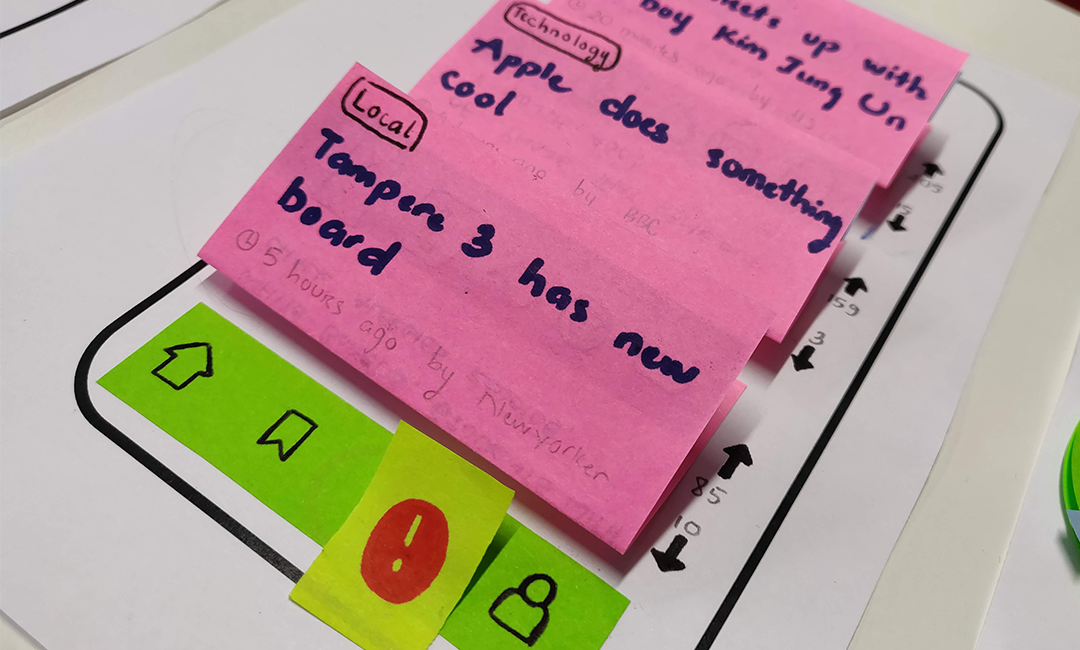 up with
boy Kim Jung Un
Technology
Apple does something
cool
by BBC
Local
Tampere 3 has new
board
5 hours ago by Newyorker
159
3
85
10